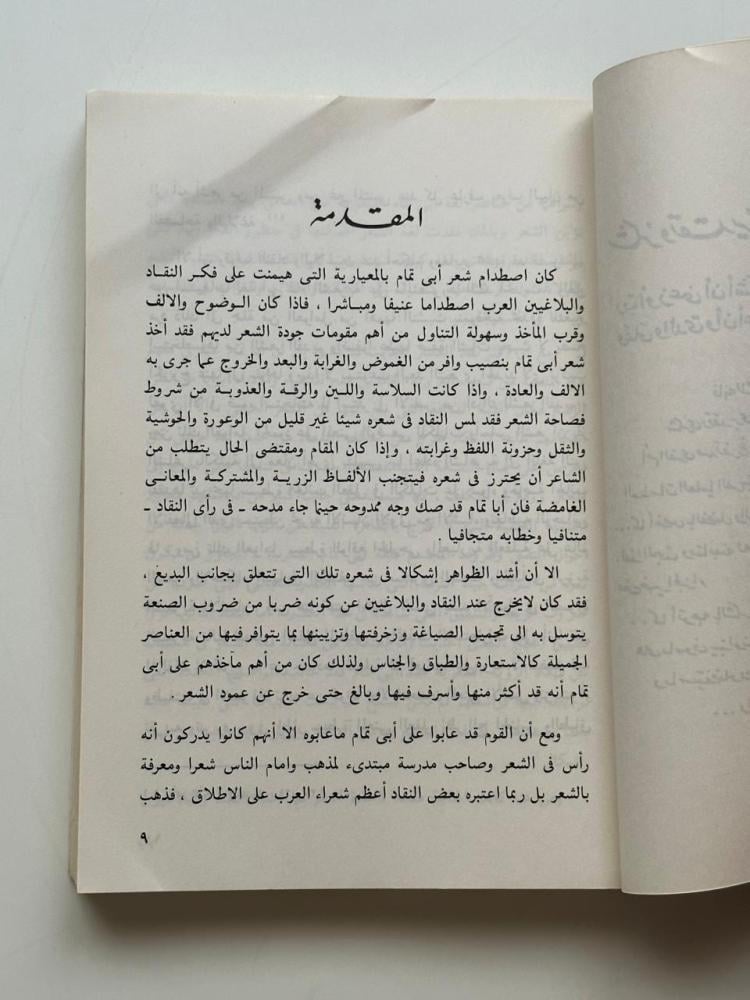 المقدمة
كان اصطدام شعر أبى تمام بالمعيارية التى هيمنت على فكر النقاد
والبلاغيين العرب اصطداما عنيفا ومباشرا ، فاذا كان الوضوح والالف
وقرب المأخذ وسهولة التناول من أهم مقومات جودة الشعر لديهم فقد أخذ
شعر أبى تمام بنصيب وافر من الغموض والغرابة والبعد والخروج عما جرى به
الالف والعادة ، واذا كانت السلاسة واللين والرقة والعذوبة من شروط
فصاحة الشعر فقد لمس النقاد فى شعره شيئا غير قليل من الوعورة والحوشية
والثقل وحزونة اللفظ وغرابته ، وإذا كان المقام ومقتضى الحال يتطلب من
الشاعر أن يحترز فى شعره فيتجنب الألفاظ الزرية والمشتركة والمعانى
الغامضة فان أبا تمام قد صك وجه ممدوحه حينما جاء مدحه ـ فى رأى النقاد ـ
متنافيا وخطابه متجافيا .
الا أن أشد الظواهر إشكالا فى شعره تلك التى تتعلق بجانب البديع ،
فقد كان لايخرج عند النقاد والبلاغيين عن كونه ضربا من ضروب الصنعة
يتوسل به الى تجميل الصياغة وزخرفتها وتزيينها بما يتوافر فيها من العناصر
الجميلة كالاستعارة والطباق والجناس ولذلك كان من أهم مآخذهم على أبى
تمام أنه قد أكثر منها وأسرف فيها وبالغ حتى خرج عن عمود الشعر .
ومع أن القوم قد عابوا على أبى تمام ماعابوه الا أنهم كانوا يدركون أنه
رأس فى الشعر وصاحب مدرسة مبتدىء لمذهب وامام الناس شعرا ومعرفة
بالشعر بل ربما اعتبره بعض النقاد أعظم شعراء العرب على الاطلاق ، فذهب
٩